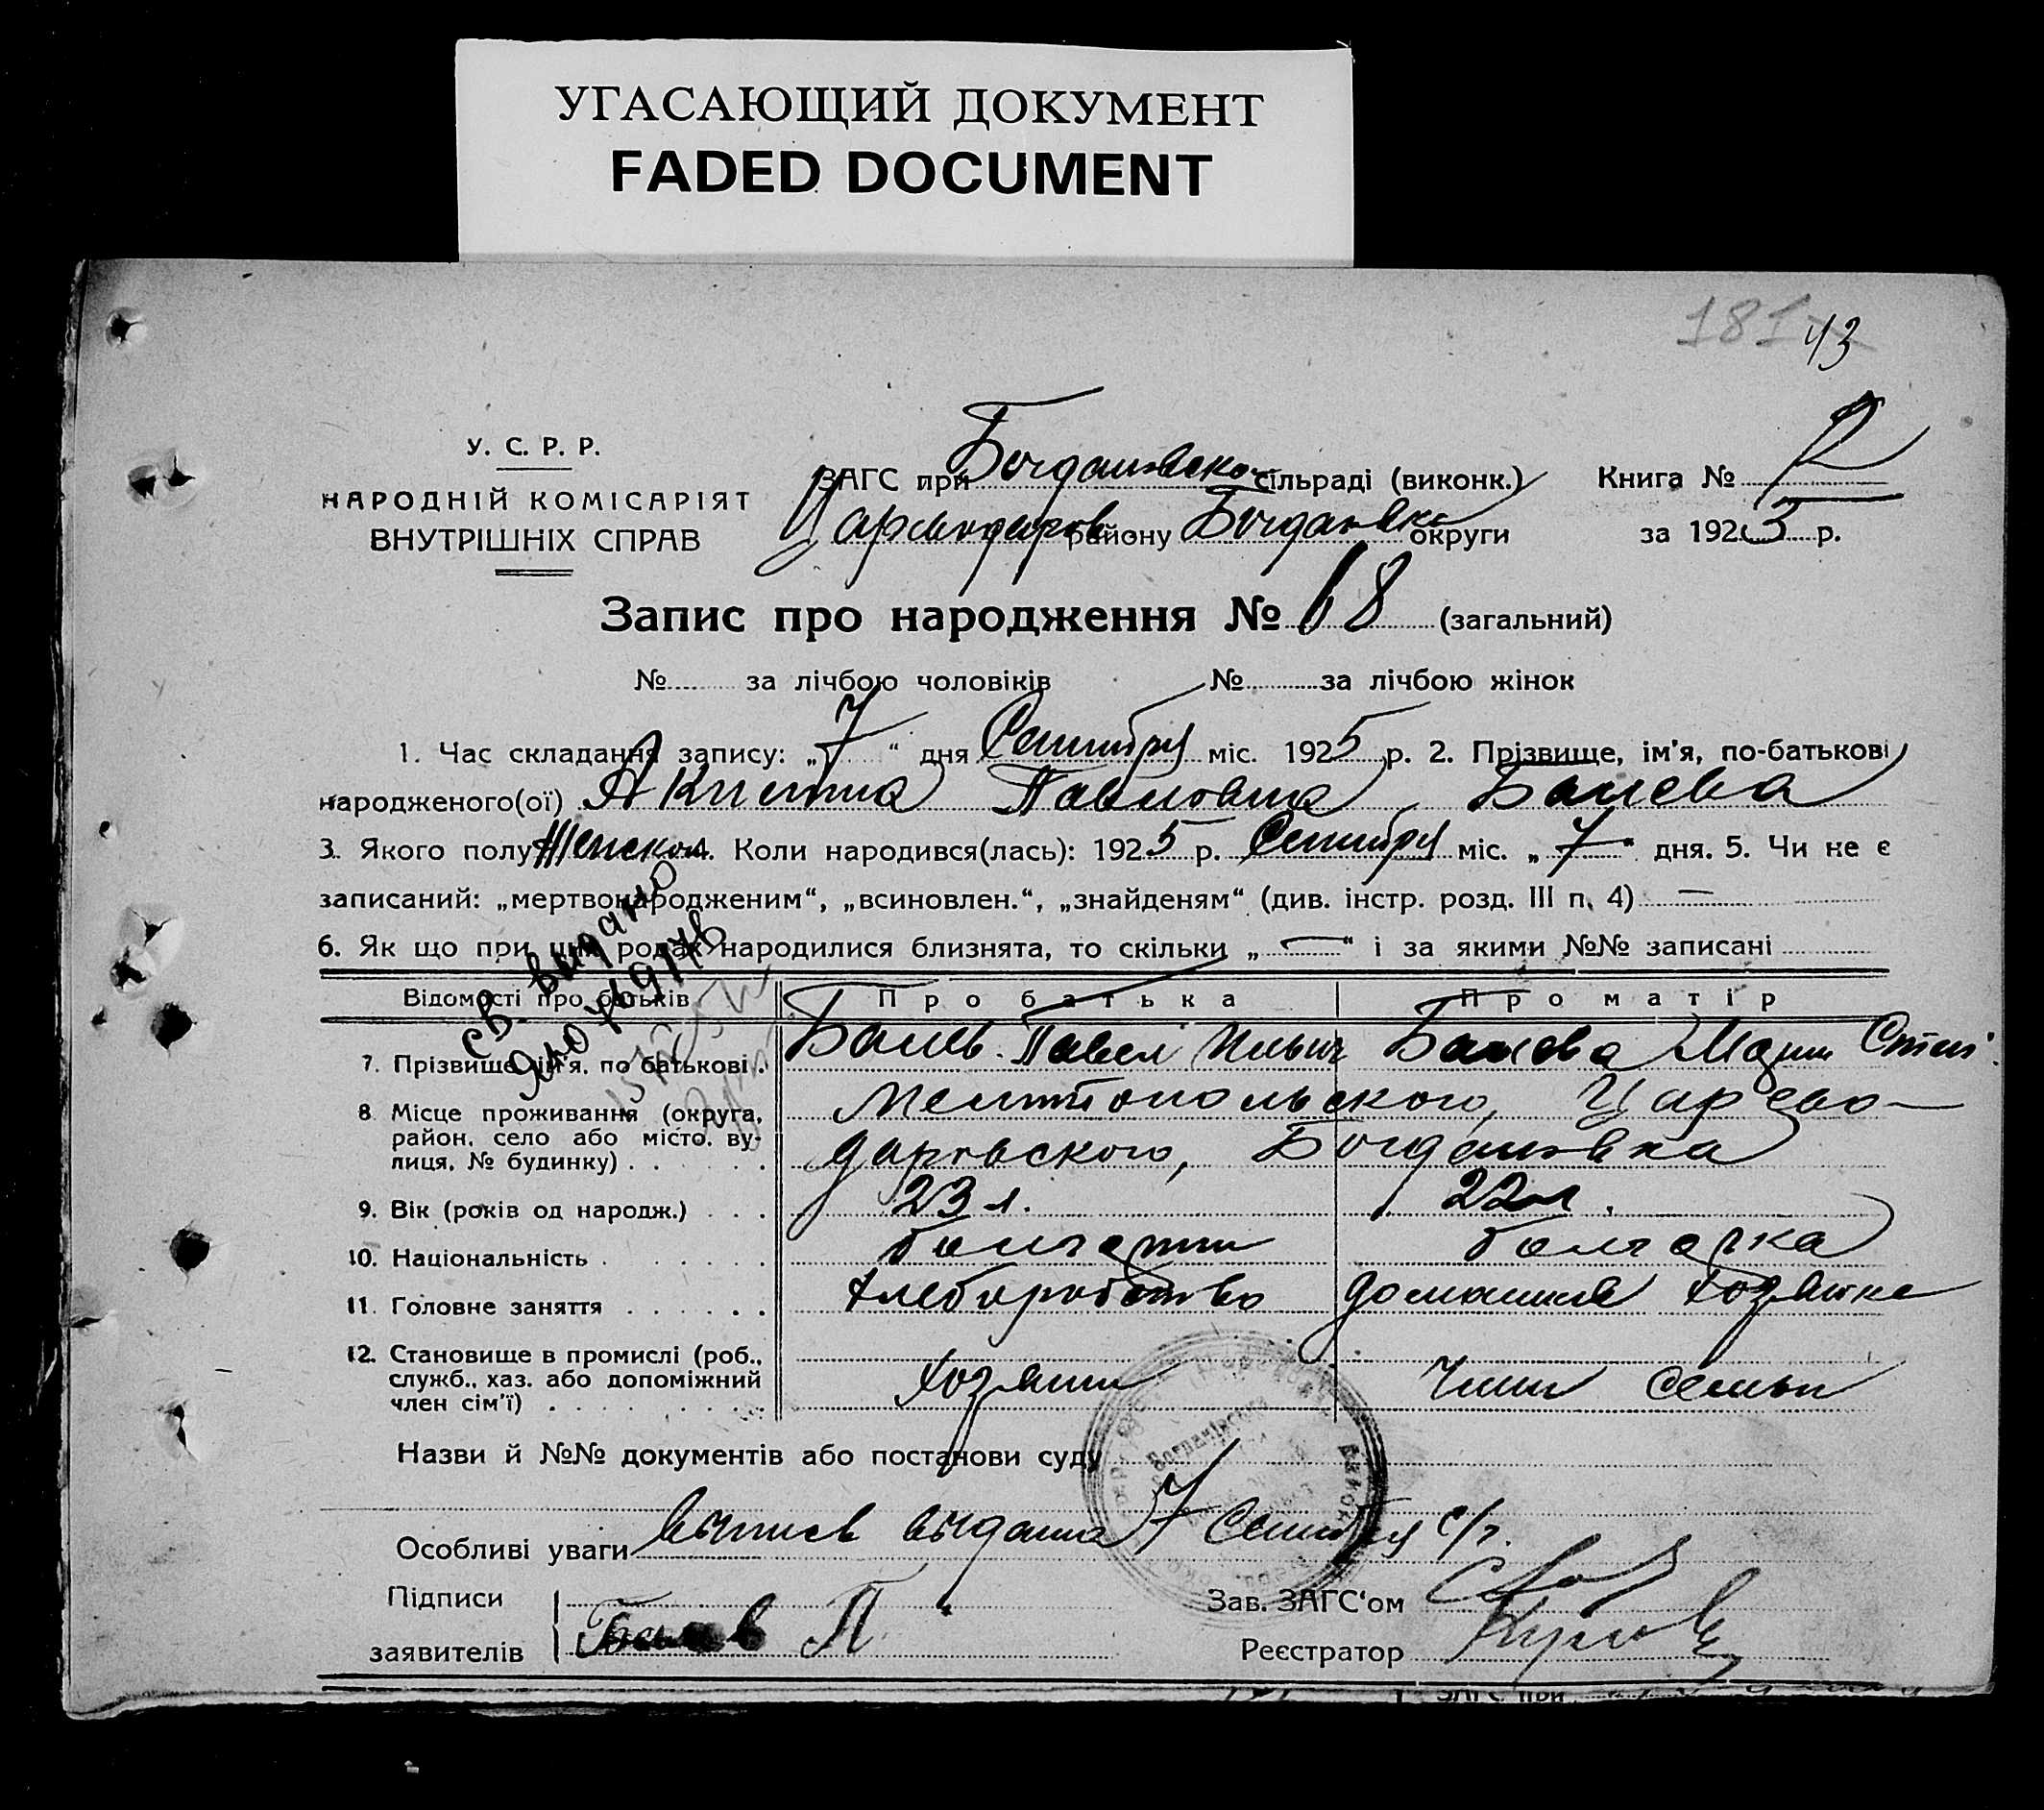 УГАСАЮЩИЙ ДОКУМЕНТ
FADED DOCUMENT
181
43
У. С. Р. Р.
НАРОДНІЙ КОМІСАРІЯТ
ВНУТРІШНІХ СПРАВ
ЗАГС при Богдановском сільраді (виконк.)
району Богдановка округи
Книга №
за 1925 р.
Запис про народження № 68 (загальний)
№ за лічбою чоловіків № за лічбою жінок
1. Час складання запису: „7“ дня Сентября міс. 1925 р. 2. Прізвище, ім'я, по-батькові
народженого(ої) Павловна Балева
3. Якого полу Женском 4. Коли народився(лась): 1925 р. Сентября міс. „7“ дня. 5. Чи не є
записаний: „мертвонародженим“, „всиновлен.“, „знайденям“ (див. інстр. розд. III п. 4) —
6. Як що при цих родах народилися близнята, то скільки „—“ і за якими №№ записані
св. видано
Відомості про батьків Про батька Про матір
7. Прізвище, ім'я, по батькові . Балев Павел Ильич Балева Мария Степ.
8. Місце проживання (округа, Мелитопольского, Царево-
район, село або місто, ву- даровского, Богдановка
лиця, № будинку) . . . .
9. Вік (років од народж.) . . . 23 л. 22 л.
10. Національність . . . . . . болгарин болгарка
11. Головне заняття . . . . . . хлеборобство домашняя хозяйка
12. Становище в промислі (роб.,
служб., хаз. або допоміжний Хозяин Член семьи
член сім'ї) . . . . . . . .
Назви й №№ документів або постанови суду
Особливі уваги выпись выдана 7 Сентября с/г.
Підписи
заявителів Балев П
Зав. ЗАГС'ом
Реєстратор
ЗАГС при